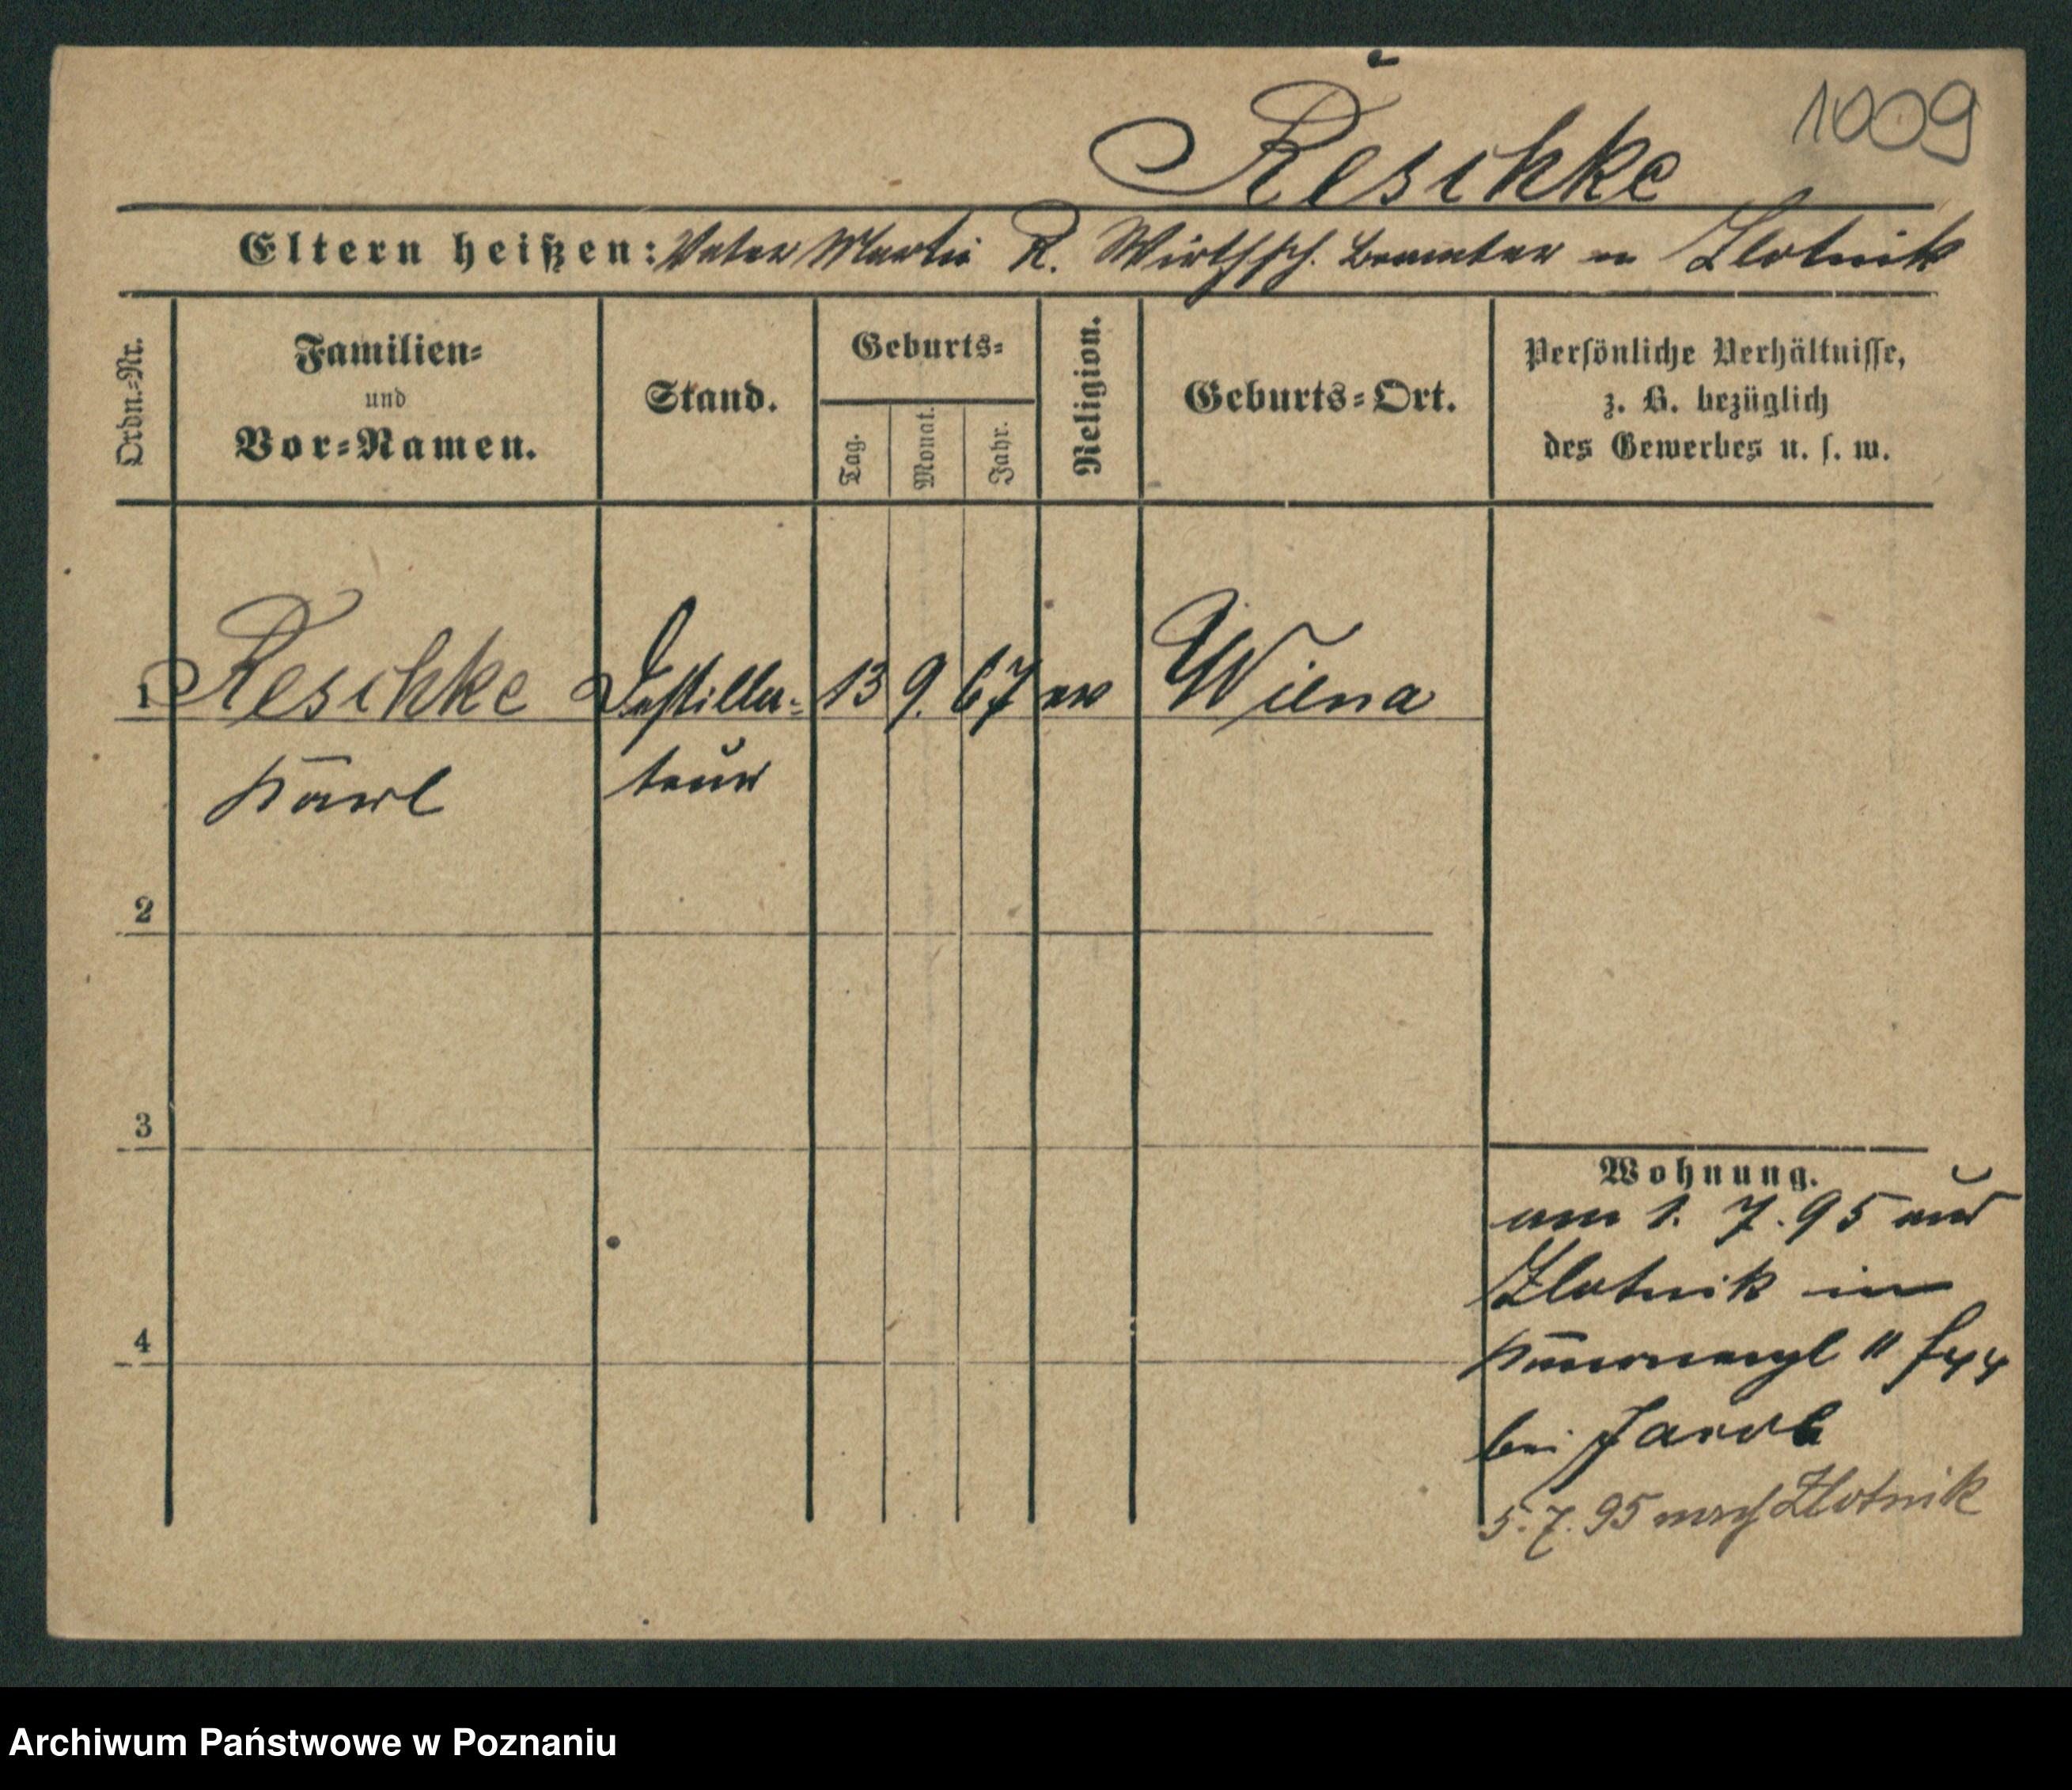 1009
Reschke
Eltern heißen: Vater Martin R. Wirthsch. Beamter in Zlotnik
Ordn.=Nr.
Familien=
und
Vor=Namen.
Stand.
Geburts=
Tag.
Monat.
Jahr.
Religion.
Geburts=Ort.
Persönliche Verhältnisse,
z. B. bezüglich
des Gewerbes u. s. w.
1 Reschke Destilla= 13 9. 67 ev Wiena
Karl teur
2
3
4
Wohnung.
am 1. 7. 95 aus
Zlotnik in
bei Jacob
5. 7. 95 nach Zlotnik
Archiwum Państwowe w Poznaniu